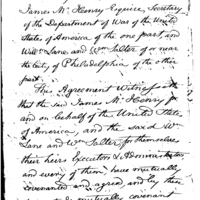 James Mc. Henry Esquire, Secretary
of the Department of War of the United
States of America of the one part, and
Will Lane and Wm Salter of or near
the City of Philadelphia of the other
part.
This Agreement Witnesseth
that the said James Mc. Henry for
and on behalf of the United States
of America, and the said Wm
Lane and Wm Salter for themselves,
their heirs Executors & Administrators
and every of them, have mutually
covenanted and agreed, and by these
mutually covenant